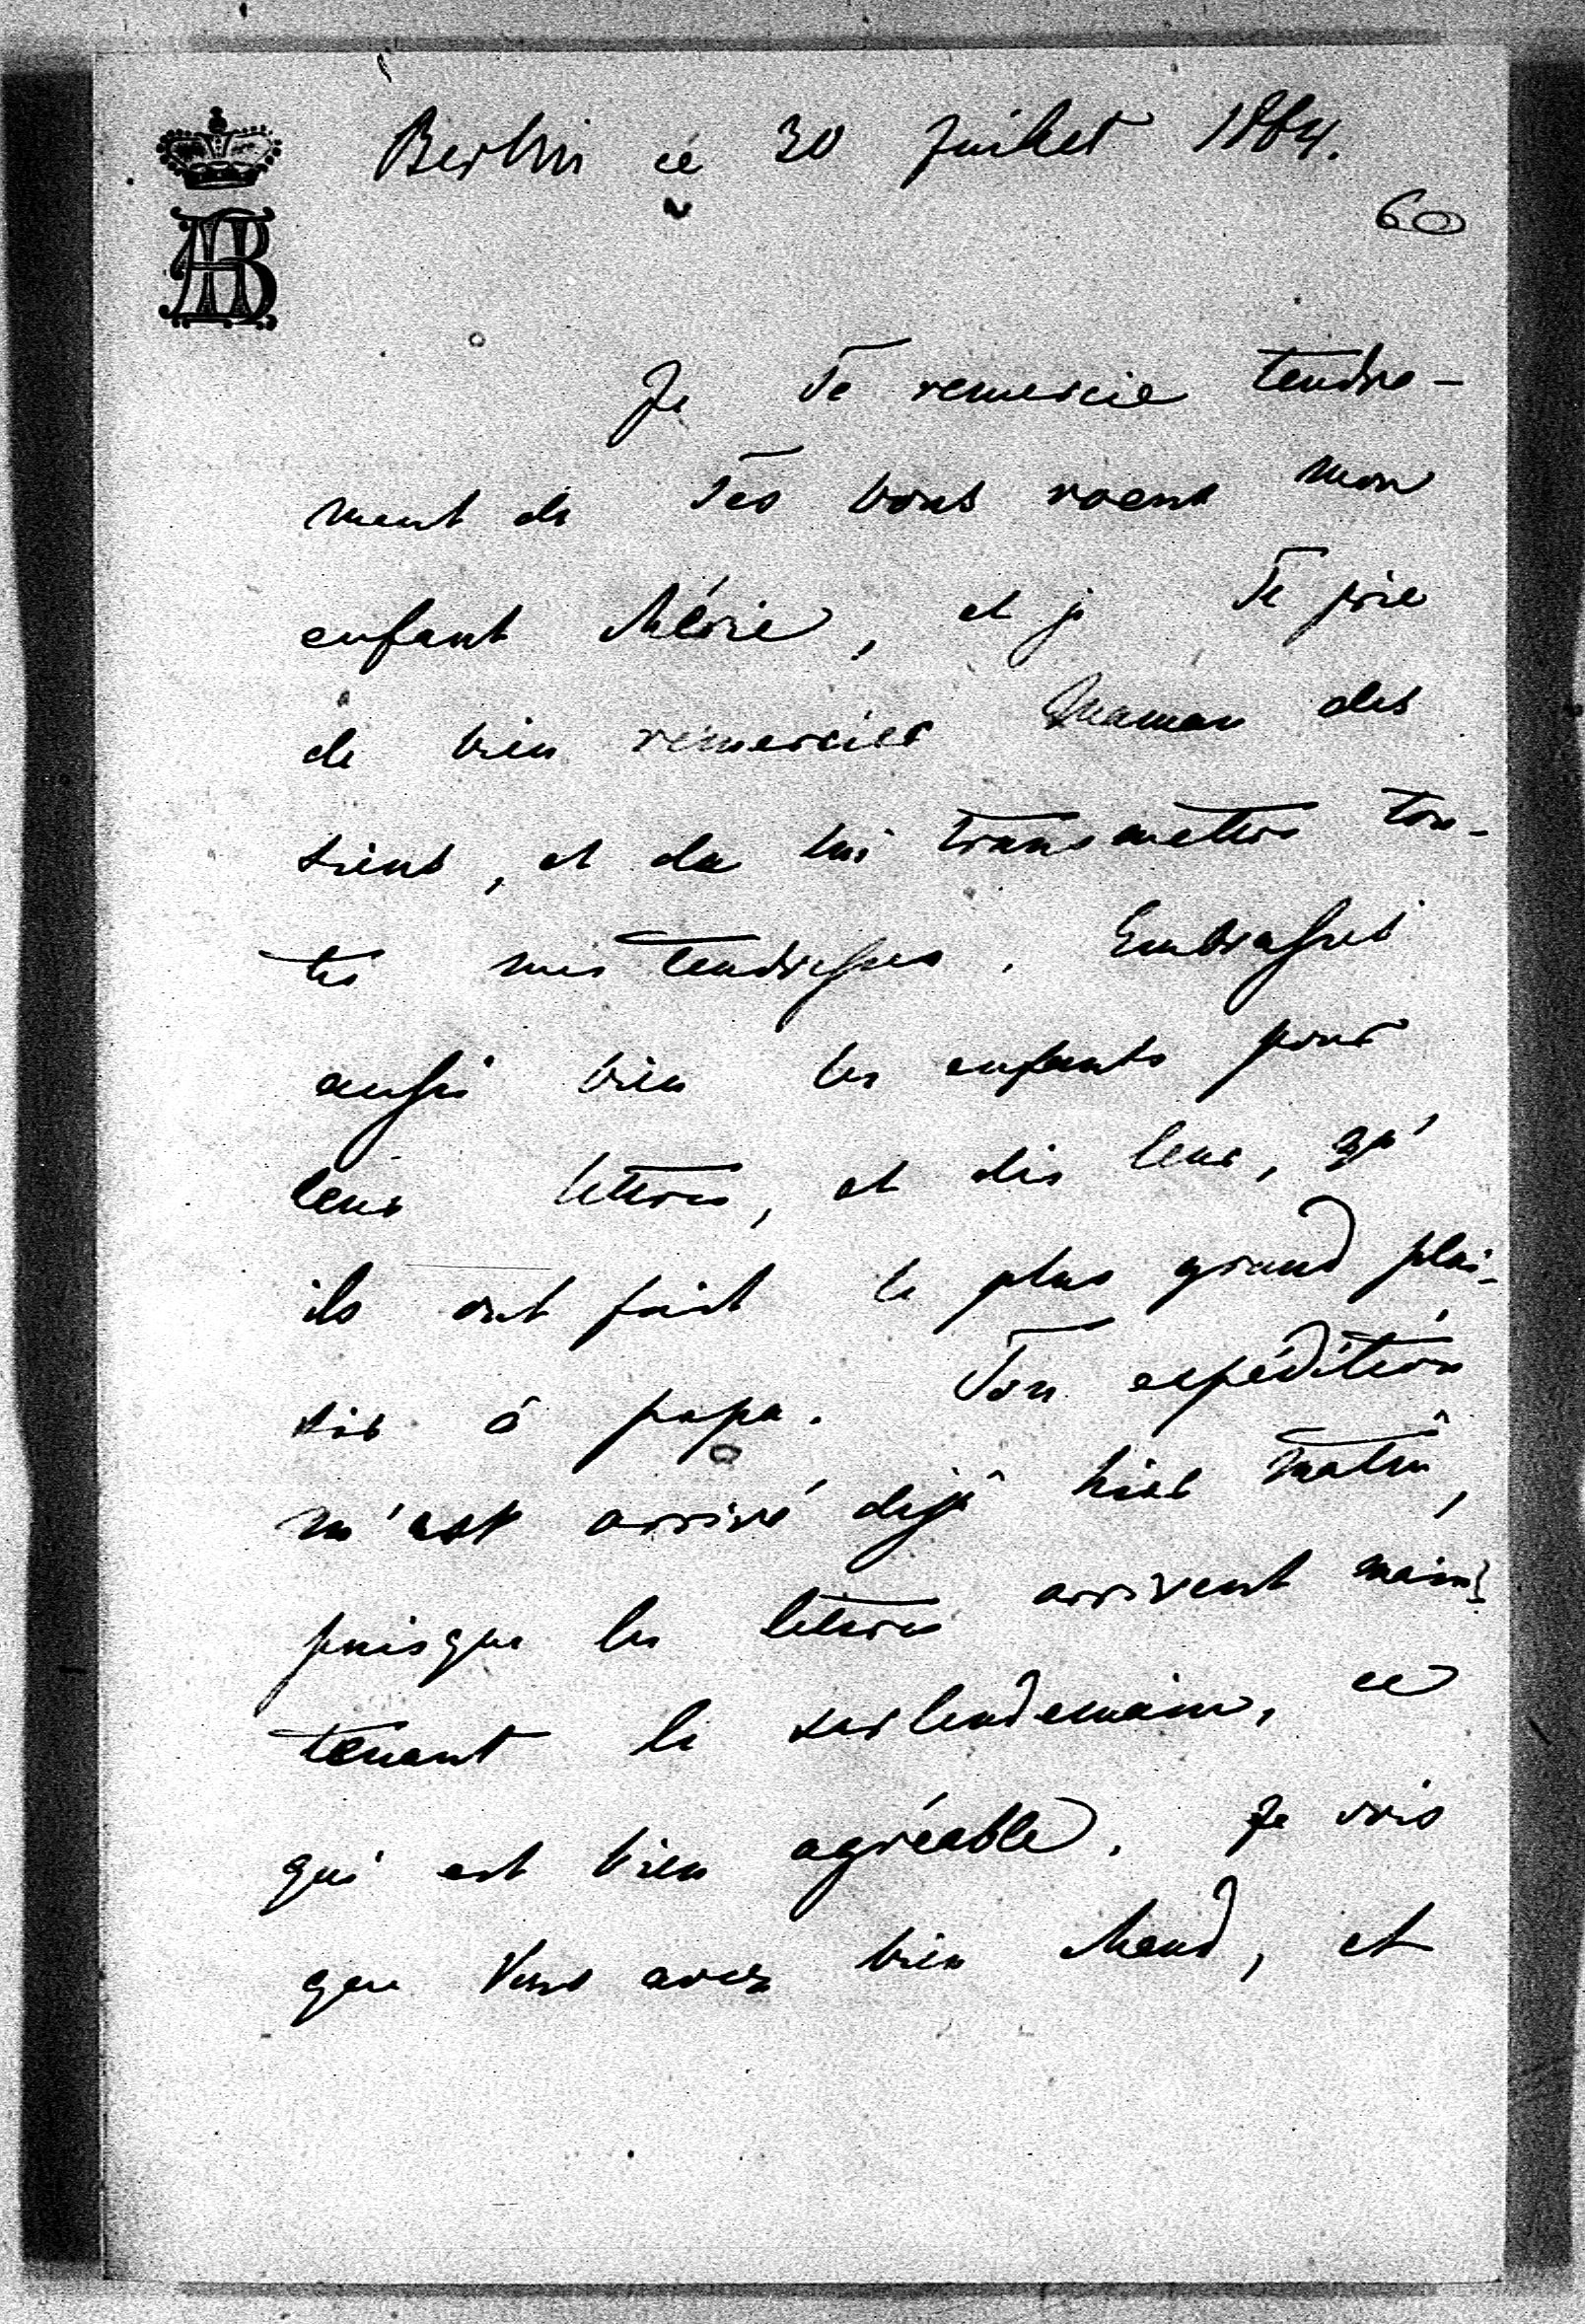 AB
Berlin ce 30 Juillet 1864.
60
Je Te remercie tendre-
ment de Tes bons voeux mon
enfant chérie, et je Te prie
de bien remercier Maman des
siens, et de lui transmettre tou-
tes mes tendresses. Embrasses
aussi bien les enfants pour
leurs lettres, et dis leur, qu'
ils ont fait le plus grand plai-
sir à papa. Ton expédition
m'est arrivé déjà hier matin,
puisque les lettres arrivent main-
tenant le surlendemain, ce
qui est bien agréable. Je vois
que Vous avez bien chaud, et